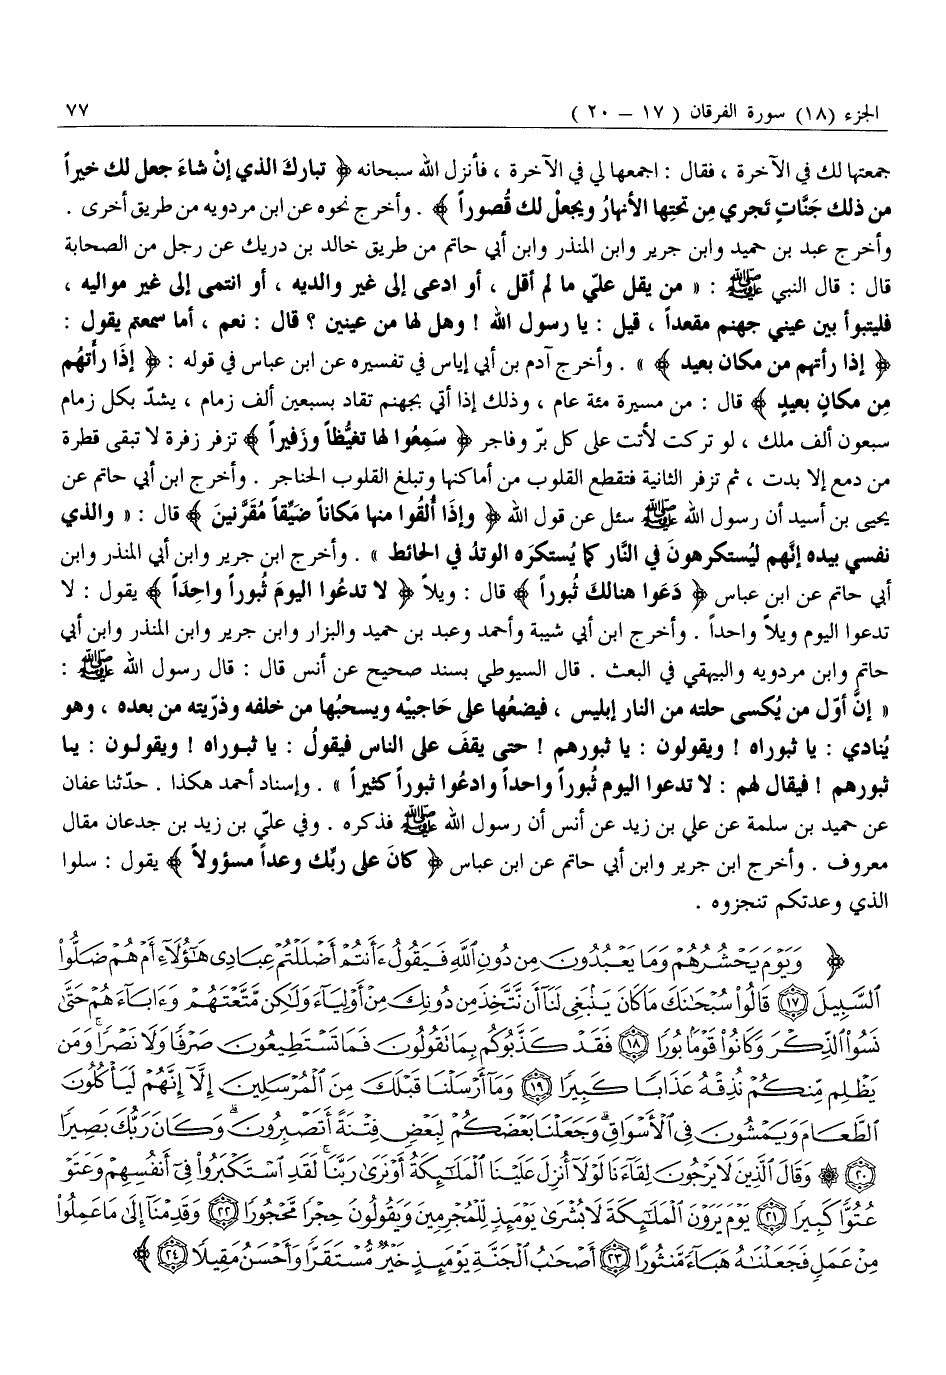 الجزء (١٨) سورة الفرقان ( ١٧ – ٢٠ ) ٧٧
جمعتها لك في الآخرة ، فقال : اجمعها لي في الآخرة ، فأنزل الله سبحانه ﴿ تبارك الذي إنْ شاءَ جعل لك خيراً
من ذلك جَنَّاتٍ تَجري مِن تحتِها الأنهارُ ويجعلْ لك قُصوراً ﴾ . وأخرج نحوه عن ابن مردويه من طريق أخرى .
وأخرج عبد بن حميد وابن جرير وابن المنذر وابن أبي حاتم من طريق خالد بن دريك عن رجل من الصحابة
قال : قال النبي ﷺ : « من يقل عليّ ما لم أقل ، أو ادعى إلى غير والديه ، أو انتمى إلى غير مواليه ،
فليتبوأ بين عيني جهنم مقعداً ، قيل : يا رسول الله ! وهل لها من عينين ؟ قال : نعم ، أما سمعتم يقول :
﴿ إذا رأتهم من مكان بعيد ﴾ » . وأخرج آدم بن أبي إياس في تفسيره عن ابن عباس في قوله : ﴿ إذَا رأَتهُم
مِن مكانٍ بعيدٍ ﴾ قال : من مسيرة مئة عام ، وذلك إذا أتي بجهنم تقاد بسبعين ألف زمام ، يشدّ بكل زمام
سبعون ألف ملك ، لو تركت لأتت على كل برّ وفاجر ﴿ سَمِعُوا لها تغيُّظاً وزَفيراً ﴾ تزفر زفرة لا تبقى قطرة
من دمع إلا بدت ، ثم تزفر الثانية فتقطع القلوب من أماكنها وتبلغ القلوب الحناجر . وأخرج ابن أبي حاتم عن
يحيى بن أسيد أن رسول الله ﷺ سئل عن قول الله ﴿ وإذَا أُلقُوا منها مَكاناً ضيِّقاً مُقَرَّنينَ ﴾ قال : « والذي
نفسي بيده إنَّهم ليُستكرهونَ في النَّار كما يُستكرَه الوتدُ في الحائط » . وأخرج ابن جرير وابن أبي المنذر وابن
أبي حاتم عن ابن عباس ﴿ دَعَوا هنالكَ ثُبوراً ﴾ قال : ويلاً ﴿ لا تدعُوا اليومَ ثُبوراً واحِدَاً ﴾ يقول : لا
تدعوا اليوم ويلاً واحداً . وأخرج ابن أبي شيبة وأحمد وعبد بن حميد والبزار وابن جرير وابن المنذر وابن أبي
حاتم وابن مردويه والبيهقي في البعث . قال السيوطي بسند صحيح عن أنس قال : قال رسول الله ﷺ :
« إنَّ أوّل من يُكسى حلته من النار إبليس ، فيضعُها على حَاجبيْه ويسحبُها من خلفه وذرّيته من بعده ، وهو
يُنادي : يا ثبوراه ! ويقولون : يا ثبورهم ! حتى يقفَ على الناس فيقولُ : يا ثبوراه ! ويقولون : يا
ثبورهم ! فيقال لهم : لا تدعوا اليوم ثُبوراً واحداً وادعُوا ثبوراً كثيراً » . وإسناد أحمد هكذا . حدّثنا عفان
عن حميد بن سلمة عن علي بن زيد عن أنس أن رسول الله ﷺ فذكره . وفي عليّ بن زيد بن جدعان مقال
معروف . وأخرج ابن جرير وابن أبي حاتم عن ابن عباس ﴿ كانَ على ربِّك وعداً مسؤولاً ﴾ يقول : سلوا
الذي وعدتكم تنجزوه .
﴿ وَيَوْمَ يَحْشُرُهُمْ وَمَا يَعْبُدُونَ مِن دُونِ ٱللَّهِ فَيَقُولُ ءَأَنتُمْ أَضْلَلْتُمْ عِبَادِى هَٰٓؤُلَآءِ أَمْ هُمْ ضَلُّوا۟
ٱلسَّبِيلَ ١٧ قَالُوا۟ سُبْحَٰنَكَ مَا كَانَ يَنۢبَغِى لَنَآ أَن نَّتَّخِذَ مِن دُونِكَ مِنْ أَوْلِيَآءَ وَلَٰكِن مَّتَّعْتَهُمْ وَءَابَآءَهُمْ حَتَّىٰ
نَسُوا۟ ٱلذِّكْرَ وَكَانُوا۟ قَوْمًۢا بُورًا ١٨ فَقَدْ كَذَّبُوكُم بِمَا تَقُولُونَ فَمَا تَسْتَطِيعُونَ صَرْفًا وَلَا نَصْرًا ۚ وَمَن
يَظْلِم مِّنكُمْ نُذِقْهُ عَذَابًا كَبِيرًا ١٩ وَمَآ أَرْسَلْنَا قَبْلَكَ مِنَ ٱلْمُرْسَلِينَ إِلَّآ إِنَّهُمْ لَيَأْكُلُونَ
ٱلطَّعَامَ وَيَمْشُونَ فِى ٱلْأَسْوَاقِ ۗ وَجَعَلْنَا بَعْضَكُمْ لِبَعْضٍ فِتْنَةً أَتَصْبِرُونَ ۗ وَكَانَ رَبُّكَ بَصِيرًا
٢٠ ۞ وَقَالَ ٱلَّذِينَ لَا يَرْجُونَ لِقَآءَنَا لَوْلَآ أُنزِلَ عَلَيْنَا ٱلْمَلَٰٓئِكَةُ أَوْ نَرَىٰ رَبَّنَا ۗ لَقَدِ ٱسْتَكْبَرُوا۟ فِىٓ أَنفُسِهِمْ وَعَتَوْ
عُتُوًّا كَبِيرًا ٢١ يَوْمَ يَرَوْنَ ٱلْمَلَٰٓئِكَةَ لَا بُشْرَىٰ يَوْمَئِذٍ لِّلْمُجْرِمِينَ وَيَقُولُونَ حِجْرًا مَّحْجُورًا ٢٢ وَقَدِمْنَآ إِلَىٰ مَا عَمِلُوا۟
مِنْ عَمَلٍ فَجَعَلْنَٰهُ هَبَآءً مَّنثُورًا ٢٣ أَصْحَٰبُ ٱلْجَنَّةِ يَوْمَئِذٍ خَيْرٌ مُّسْتَقَرًّا وَأَحْسَنُ مَقِيلًا ٢٤ ﴾